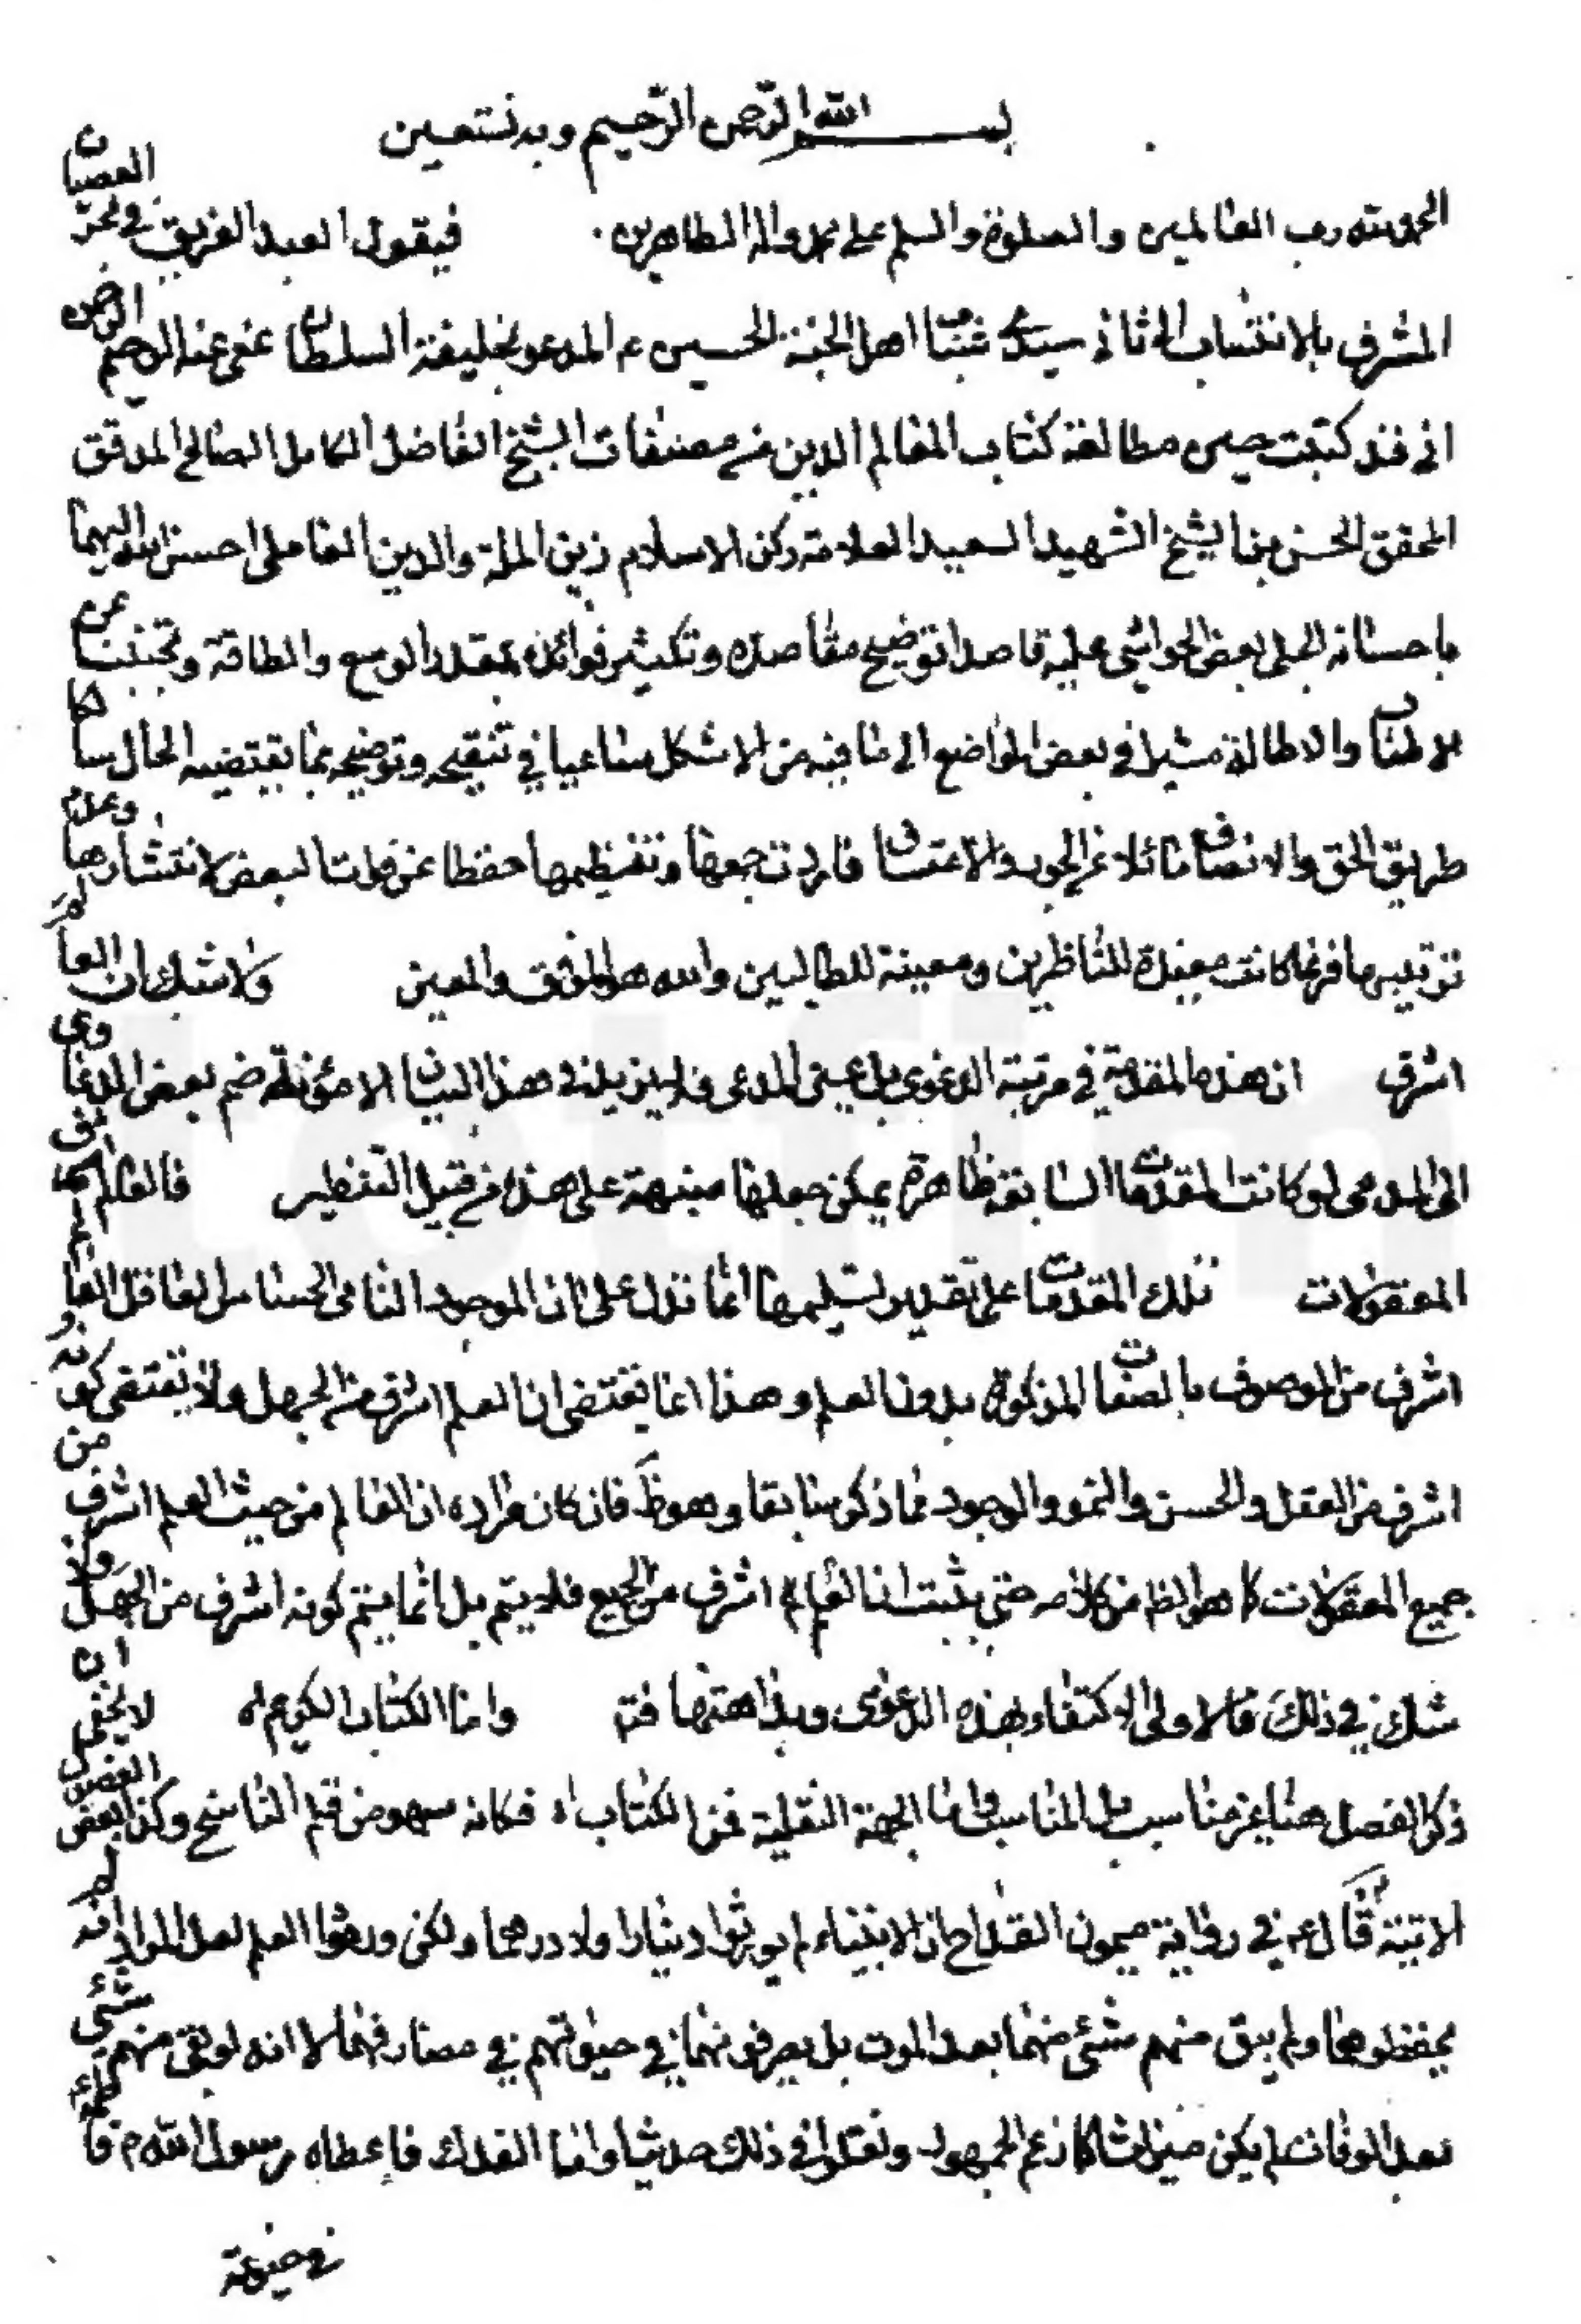 بسم الله الرحمن الرحيم وبه نستعين
الحمد لله رب العالمين والصلوة والسلم على محمد واله الطاهرين فيقول العبد الغريق في بحر العصيان
المشرف بالانتساب الى ثانى سيدى شباب اهل الجنة الحسين ع المدعو بخليفة السلطان عفى عنه الرحيم الرحمن
انى قد كتبت حين مطالعة كتاب المعالم الدين من مصنفات الشيخ الفاضل الكامل الصالح المدقق
المحقق الحسن بن الشيخ الشهيد السعيد العلامة ركن الاسلام زين الملة والدين العاملى احسن الله اليهما
باحسانه الجلى بعض الحواشى عليه قاصدا توضيح مقاصده وتكثير فوائده بمقدار الوسع والطاقة وتجنبت عن
الاطناب والاطالة مشيرا في بعض المواضع الى ما فيه من الاشكال ساعيا في تنقيحه وتوضيحه بما يقتضيه الحال سالكا
طريق الحق والانصاف مائلا عن الجور والاعتساف فاردت جمعها وتنظيمها حفظا عن فوات البعض لانتشارها وعدم
ترتيبها فربما كانت مفيدة للناظرين ومعينة للطالبين والله هو الموفق والمعين ولا شك ان العالم
اشرف ان هذه المقدمة في مرتبة الدعوى بل عين المدعى فلا يزيد في هذا البيان الا مؤنة ضم بعض الدعاوى
الى المدعى لو كانت المقدمات السابقة ظاهرة يمكن جعلها منبهة على هذا من قبيل التنظير فالعالم
المعقولات تلك المقدمات على تقدير تسليمها انما تدل على ان الموجود النامى الحساس العاقل العالم
اشرف من الموصوف بالصفات المذكورة بدون العلم وهذا انما يقتضى ان العلم اشرف من الجهل ولا يقتضى كونه
اشرف من العقل والحس والنمو والوجود مما ذكر سابقا وهو ظ فان كان مراده ان العالم من حيث العلم اشرف من
جميع المعقولات كما هو الظ من كلامه حتى يثبت ان العلم اشرف من الجميع فلا يتم بل انما يتم كونه اشرف من الجهل ولا
شك في ذلك فالاولى الاكتفاء بهذه الدعوى وبداهتها فتم واما الكتاب الكريم اه لا يخفى ان
ذكر الفصل هنا غير مناسب بل المناسب واما الجهة النقلية فمن الكتاب اه فكانه سهو من قلم الناسخ وكذا بعض الفصول
الاتية قال ع في رواية ميمون القداح ان الانبياء لم يورثوا دينارا ولا درهما ولكن ورثوا العلم لعل المراد انه لم
يحفظوها ولم يبق منهم شئ منهما بعد الموت بل يصرفونهما في حيوتهم في مصارفهما لا انه لو بقى منهم شئ
بعد الوفات لم يكن ميراثا كما زعم الجمهور ونقلوا في ذلك حديثا واما الفدك فاعطاه رسول الله ص